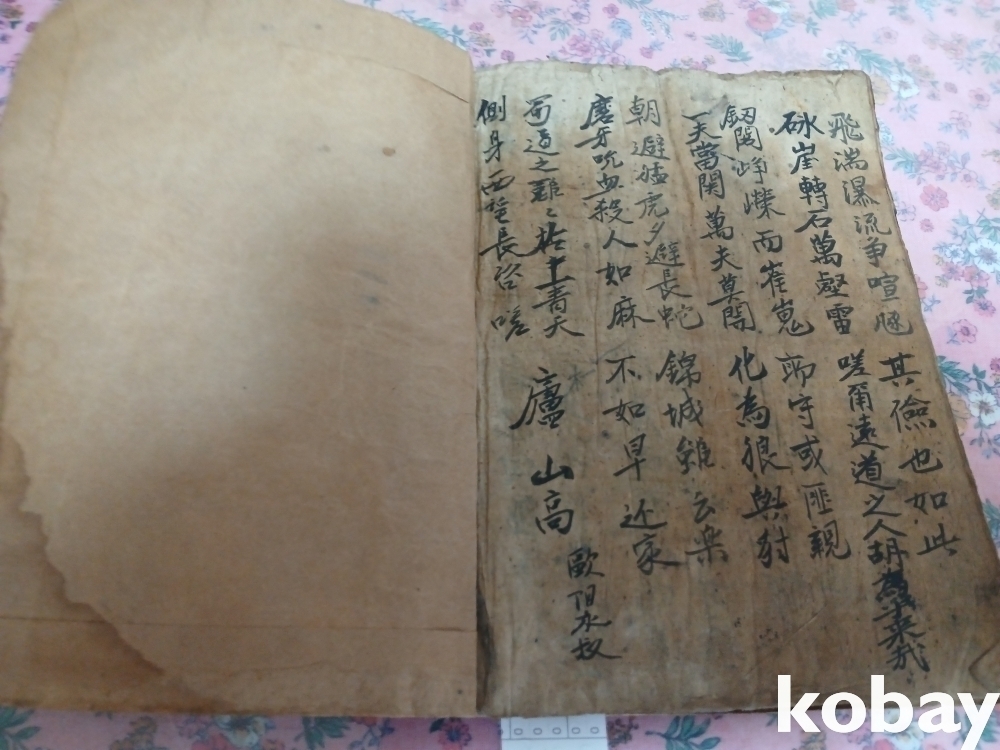 飛湍瀑流争喧豗
砅崖轉石萬壑雷
其儉也如此
嗟爾遠道之人胡為乎来哉
釼閣崢嶸而崔嵬
一夫當関萬夫莫開
所守或匪親
化為狼與豺
朝避猛虎夕避長蛇
磨牙吮血殺人如麻
錦城雖云楽
不如早还家
蜀道之難〻扵上青天
側身西望長咨嗟
廬山高
歐陽永叔
kobay